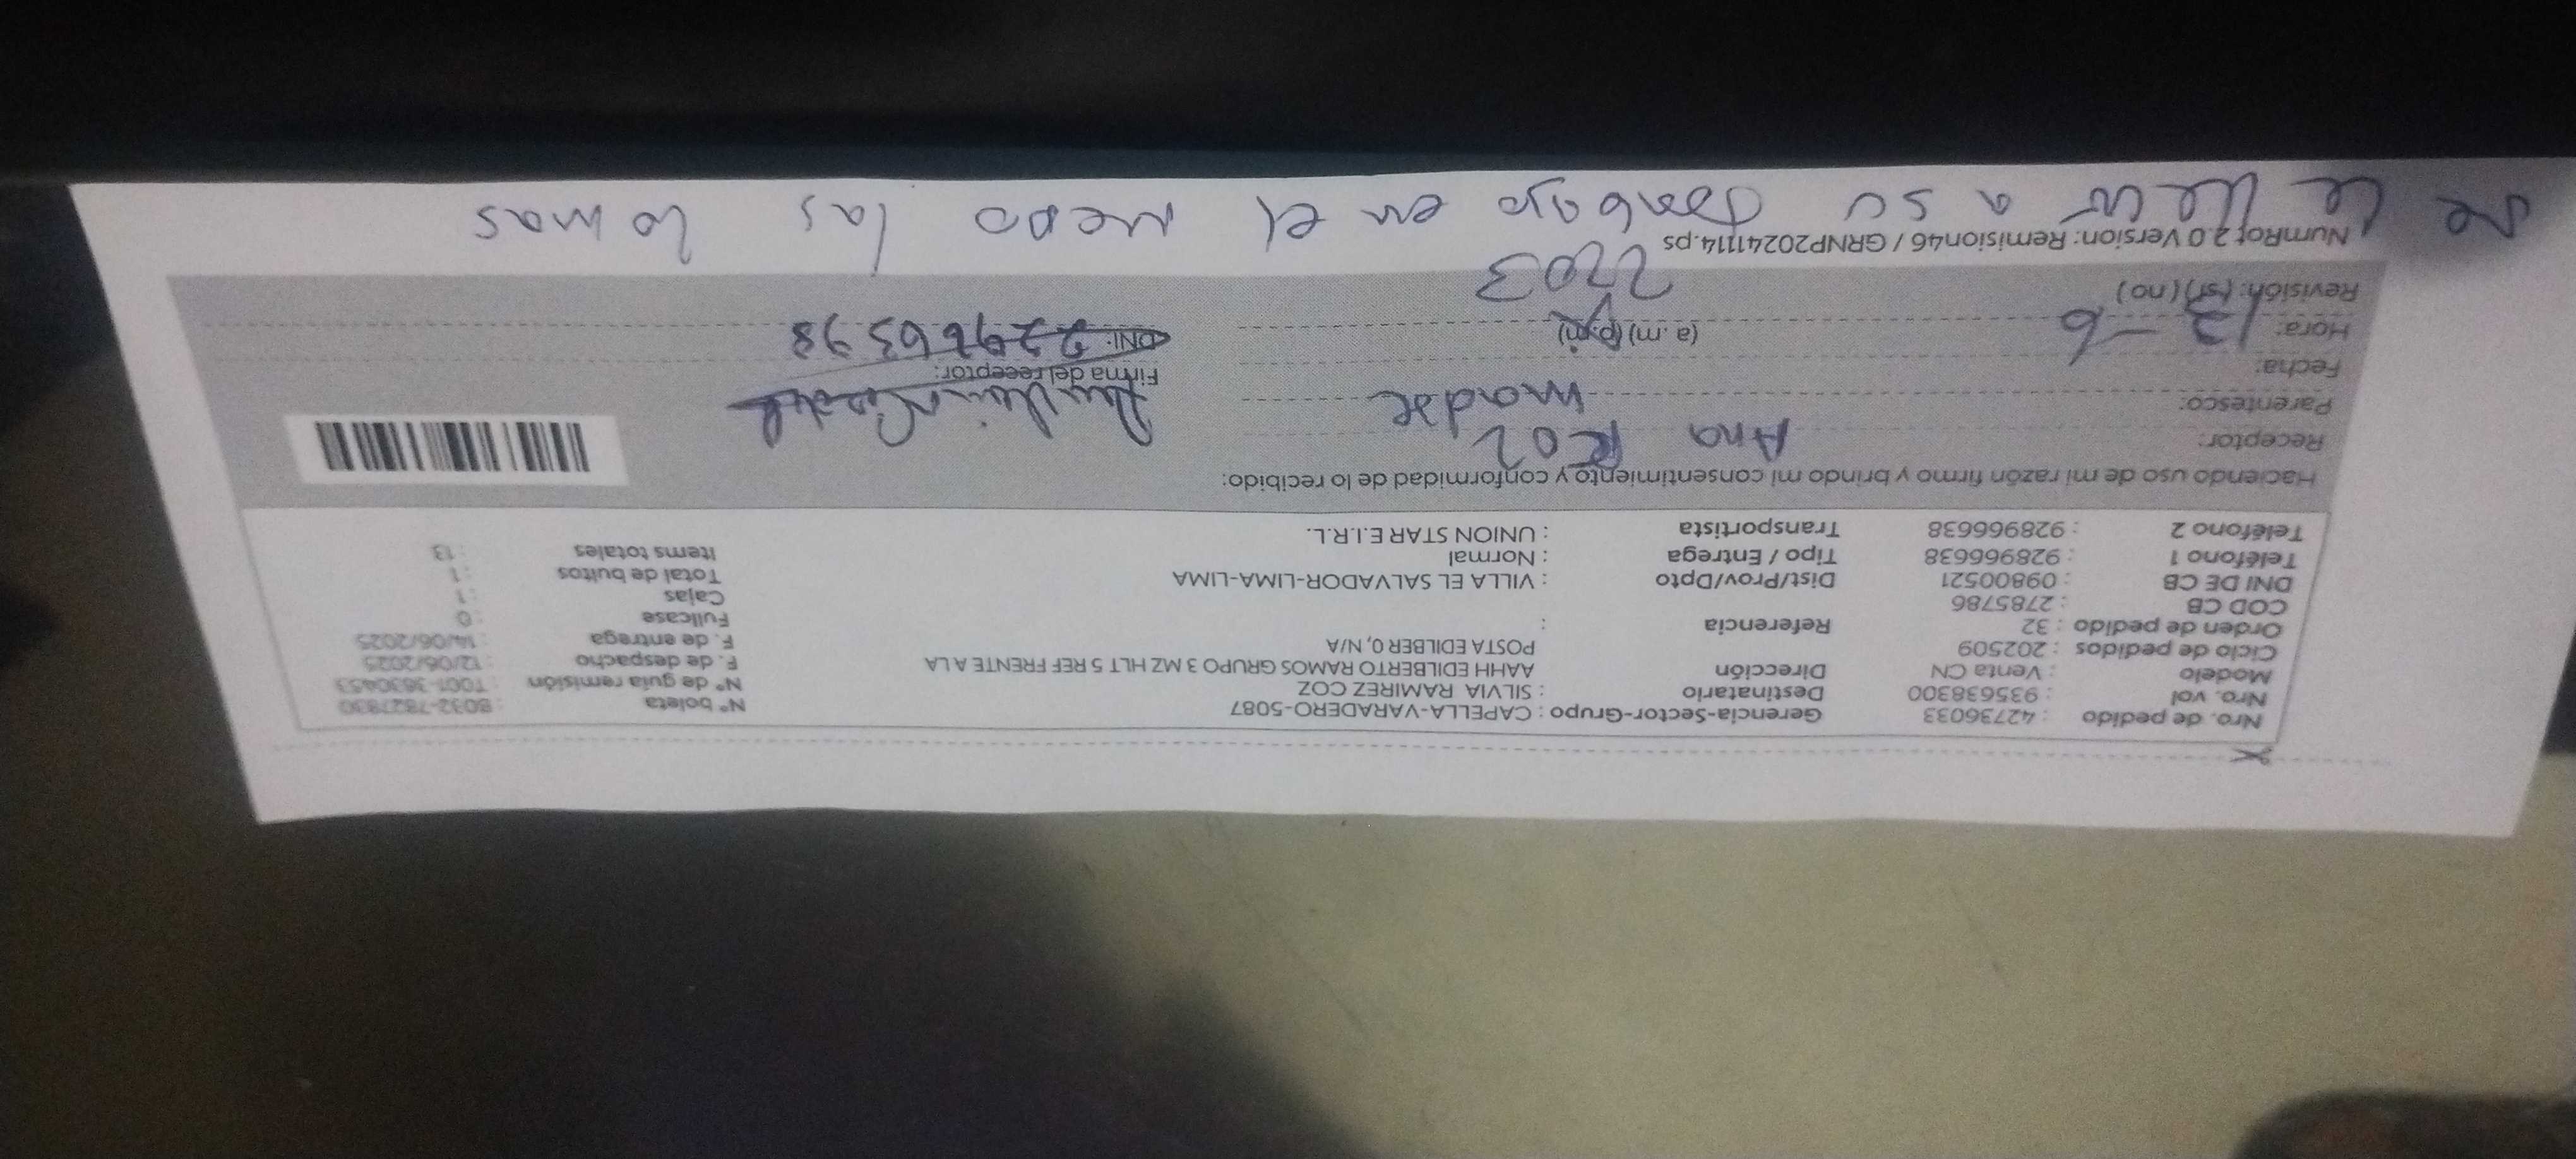 Nro. de pedido : 42736033 Gerencia-Sector-Grupo : CAPELLA-VARADERO-5087 N° boleta : B032-7827830
Nro. vol : 935638300 Destinatario : SILVIA RAMIREZ COZ N° de guía remisión : T001-3630453
Modelo : Venta CN Dirección AAHH EDILBERTO RAMOS GRUPO 3 MZ HLT 5 REF FRENTE A LA F. de despacho : 12/06/2025
Ciclo de pedidos : 202509 POSTA EDILBER 0, N/A F. de entrega : 14/06/2025
Orden de pedido : 32 Referencia : Fullcase : 0
COD CB : 2785786 Cajas : 1
DNI DE CB : 09800521 Dist/Prov/Dpto : VILLA EL SALVADOR-LIMA-LIMA Total de bultos : 1
Teléfono 1 : 928966638 Tipo / Entrega : Normal Items totales : 13
Teléfono 2 : 928966638 Transportista : UNION STAR E.I.R.L.
Haciendo uso de mi razón firmo y brindo mi consentimiento y conformidad de lo recibido:
Receptor: Ana
Parentesco: madre
Fecha: 13-6 Firma del receptor:
Hora: (a.m) (p.m) DNI:
Revisión: (si) (no) 2703
NumRot 2.0 Version: Remision46 / GRNP20241114.ps
se le a su en el las lomas